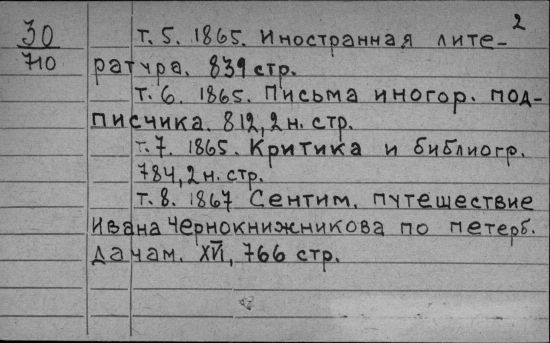 2
30
710
т. 5. 1865. Иностранная лите-
ратура. 839 стр.
т. 6. 1865. Письма иногор. под-
писчика. 812, 2 н. стр.
т. 7. 1865. Критика и библиогр.
784, 2 н. стр.
т. 8. 1867 Сентим. путешествие
Ивана Чернокнижникова по петерб.
дачам. XVI, 766 стр.